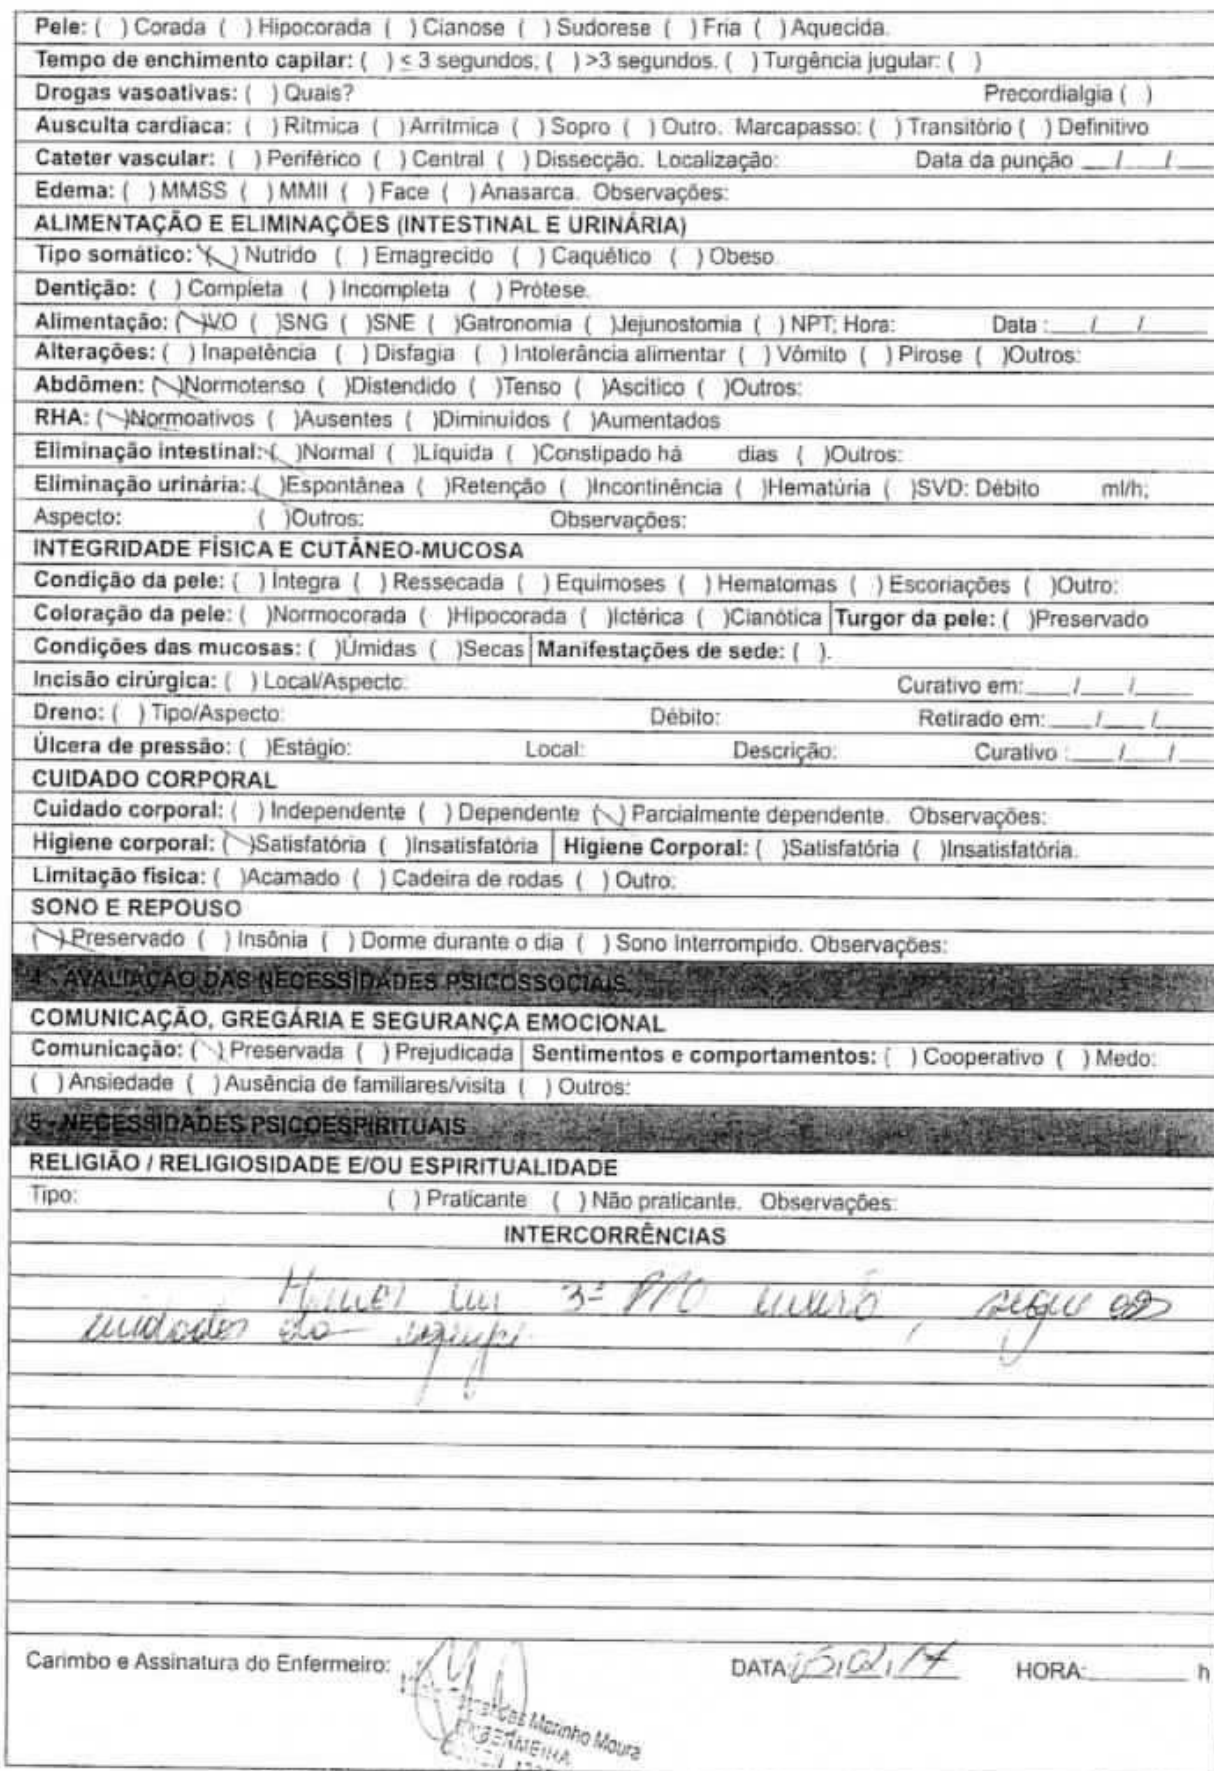 Pele: ( ) Corada ( ) Hipocorada ( ) Cianose ( ) Sudorese ( ) Fria ( ) Aquecida.
Tempo de enchimento capilar: ( ) ≤ 3 segundos; ( ) >3 segundos. ( ) Turgência jugular: ( )
Drogas vasoativas: ( ) Quais? Precordialgia ( )
Ausculta cardíaca: ( ) Rítmica ( ) Arrítmica ( ) Sopro ( ) Outro. Marcapasso: ( ) Transitório ( ) Definitivo
Cateter vascular: ( ) Periférico ( ) Central ( ) Dissecção. Localização: Data da punção __/__/__
Edema: ( ) MMSS ( ) MMII ( ) Face ( ) Anasarca. Observações:
ALIMENTAÇÃO E ELIMINAÇÕES (INTESTINAL E URINÁRIA)
Tipo somático: (\) Nutrido ( ) Emagrecido ( ) Caquético ( ) Obeso
Dentição: ( ) Completa ( ) Incompleta ( ) Prótese.
Alimentação: (\)VO ( )SNG ( )SNE ( )Gatronomia ( )Jejunostomia ( ) NPT; Hora: Data :__/__/__
Alterações: ( ) Inapetência ( ) Disfagia ( ) Intolerância alimentar ( ) Vômito ( ) Pirose ( )Outros:
Abdômen: (\)Normotenso ( )Distendido ( )Tenso ( )Ascítico ( )Outros:
RHA: (\)Normoativos ( )Ausentes ( )Diminuídos ( )Aumentados
Eliminação intestinal: (\)Normal ( )Líquida ( )Constipado há dias ( )Outros:
Eliminação urinária: (\)Espontânea ( )Retenção ( )Incontinência ( )Hematúria ( )SVD: Débito ml/h;
Aspecto: ( )Outros: Observações:
INTEGRIDADE FÍSICA E CUTÂNEO-MUCOSA
Condição da pele: ( ) Íntegra ( ) Ressecada ( ) Equimoses ( ) Hematomas ( ) Escoriações ( )Outro:
Coloração da pele: ( )Normocorada ( )Hipocorada ( )Ictérica ( )Cianótica Turgor da pele: ( )Preservado
Condições das mucosas: ( )Úmidas ( )Secas Manifestações de sede: ( ).
Incisão cirúrgica: ( ) Local/Aspecto: Curativo em:__/__/__
Dreno: ( ) Tipo/Aspecto: Débito: Retirado em:__/__/__
Úlcera de pressão: ( )Estágio: Local: Descrição: Curativo :__/__/__
CUIDADO CORPORAL
Cuidado corporal: ( ) Independente ( ) Dependente (\) Parcialmente dependente. Observações:
Higiene corporal: (\)Satisfatória ( )Insatisfatória Higiene Corporal: ( )Satisfatória ( )Insatisfatória.
Limitação física: ( )Acamado ( ) Cadeira de rodas ( ) Outro:
SONO E REPOUSO
(\) Preservado ( ) Insônia ( ) Dorme durante o dia ( ) Sono Interrompido. Observações:
4 - AVALIAÇÃO DAS NECESSIDADES PSICOSSOCIAIS
COMUNICAÇÃO, GREGÁRIA E SEGURANÇA EMOCIONAL
Comunicação: (\) Preservada ( ) Prejudicada Sentimentos e comportamentos: ( ) Cooperativo ( ) Medo:
( ) Ansiedade ( ) Ausência de familiares/visita ( ) Outros:
5 - NECESSIDADES PSICOESPIRITUAIS
RELIGIÃO / RELIGIOSIDADE E/OU ESPIRITUALIDADE
Tipo: ( ) Praticante ( ) Não praticante. Observações:
INTERCORRÊNCIAS
em 3º segue aos
cuidados da equipe
Carimbo e Assinatura do Enfermeiro: DATA HORA:____ h
Marinho Moura
ENFERMEIRA